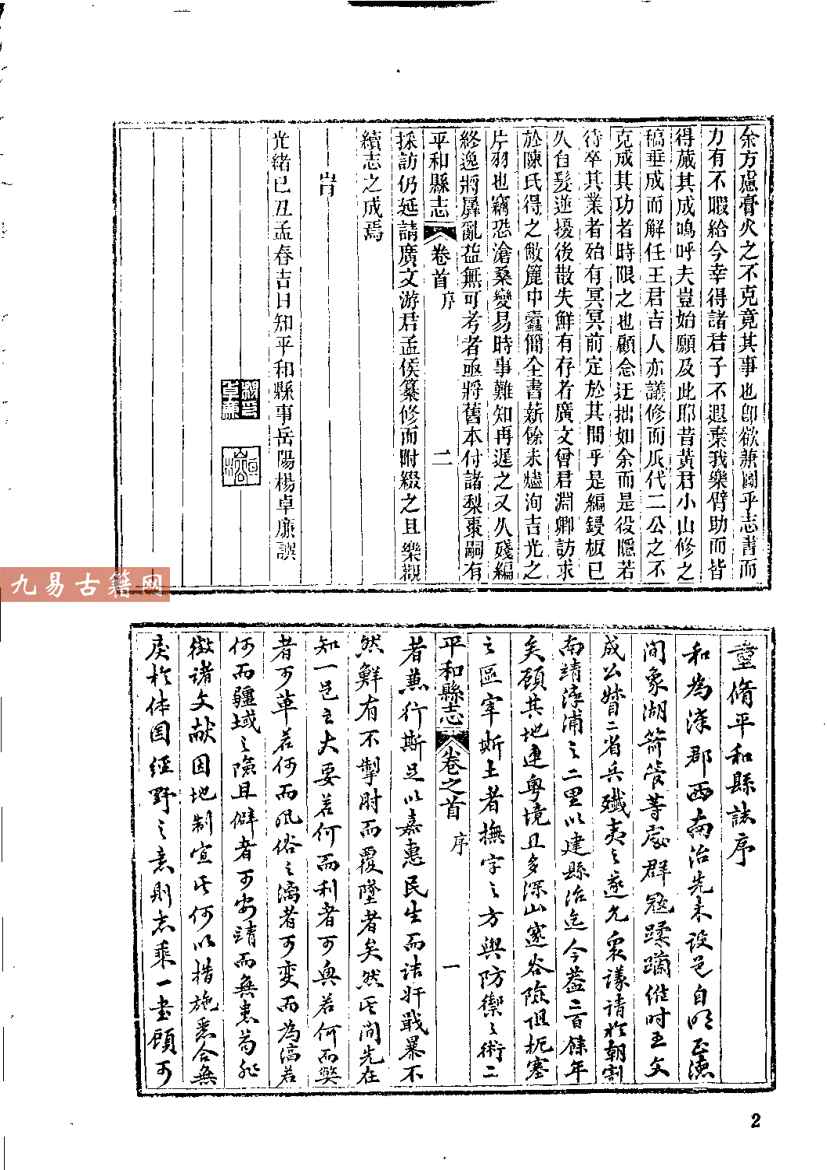 余方慮膏火之不克竟其事也卽欲兼圖乎志書而
力有不暇給今幸得諸君子不遐棄我樂臂助而皆
得蕆其成嗚呼夫豈始願及此耶昔黃君小山修之
稿垂成而解任王君吉人亦議修而瓜代二公之不
克成其功者時限之也顧念迂拙如余而是役隱若
待卒其業者殆有冥冥前定於其間乎是編鋟板已
久自髮逆擾後散失鮮有存者廣文曾君淵卿訪求
於陳氏得之敝簏中蠹簡全書薪餘未燼洵吉光之
片羽也竊恐滄桑變易時事難知再遲之又久殘編
終逸將屚亂益無可考者亟將舊本付諸梨棗嗣有
平和縣志 卷首 序 二
採訪仍延請廣文游君孟侯纂修而附綴之且樂觀
續志之成焉
旹
光緒己丑孟春吉日知平和縣事岳陽楊卓廉譔
重脩平和縣誌序
和為漳郡西南治先未設邑自明正德
間象湖箭管等處群寇蹂躪維時王文
成公督二省兵殲夷之遂允衆議請於朝割
南靖漳浦之二里以建縣治迄今蓋二百餘年
矣顧其地連粵境且多深山邃谷險阻扼塞
之區宰斯土者撫字之方與防禦之術二
平和縣志 卷之首 序 一
者兼行斯足以嘉惠民生而詰奸戢暴不
然鮮有不掣肘而覆墜者矣然其間先在
知一邑之大要若何而利者可興若何而獘
者可革若何而風俗之漓者可变而為淳若
何而疆域之險且僻者可安靖而無患苟非
徵諸文献因地制宜其何以措施悉合無
戾於体国經野之意則志乘一書顧可
2
九易古籍网